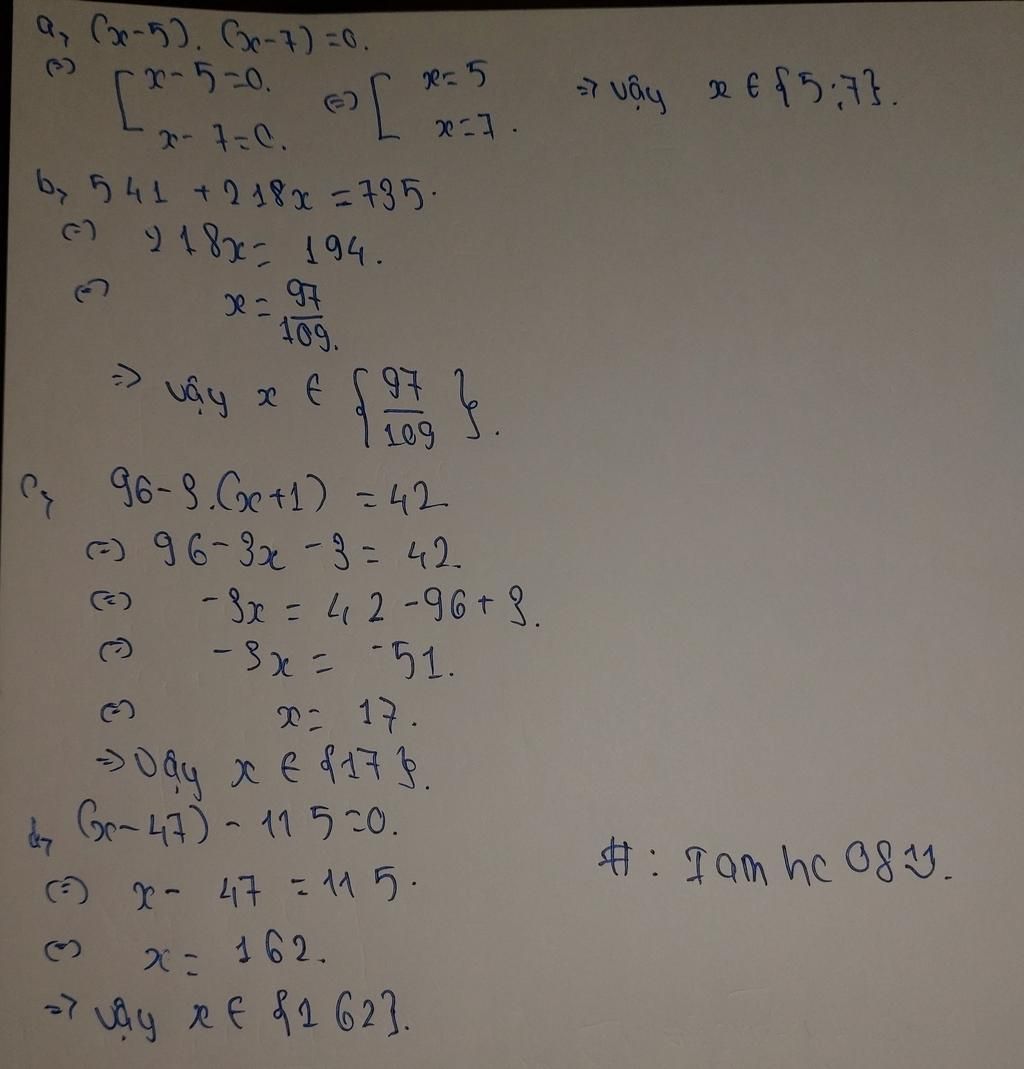 a, (x-5). (x-7)=0.
(=) [ x-5=0. (=) [ x=5 => vậy x ∈ {5;7}.
x-7=0. x=7.
b, 541 + 218x = 735.
(=) 218x = 194.
(=) x = 97/109.
=> vậy x ∈ { 97/109 }.
c, 96-3.(x+1) = 42
(=) 96-3x-3 = 42.
(=) -3x = 42-96+3.
(=) -3x = -51.
(=) x = 17.
=> Vậy x ∈ {17}.
d, (x-47) - 115=0.
(=) x - 47 = 115.
(=) x = 162.
=> vậy x ∈ {162}.